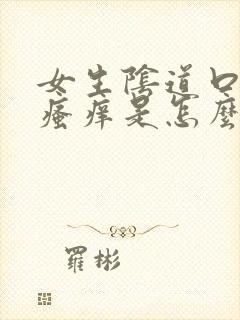 女生陰道口
瘙痒是怎麼
羅彬